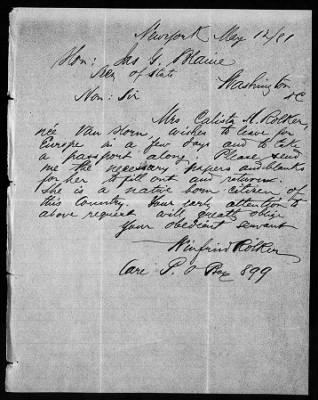 Newyork May 12/81
Hon: Jas G. Blaine
Sec of State
Washington
DC
Hon: Sir
Mrs Calista H. Rolker,
née Van Horn, wishes to leave for
Europe in a few days and to take
a passport along Please send
me the necessary papers and blanks
for her to fill out and return.
She is a native born citizen of
this Country. Your early attention to
above request will greatly oblige
Your obedient servant
Winfried Rolker
Care P. O Box 899